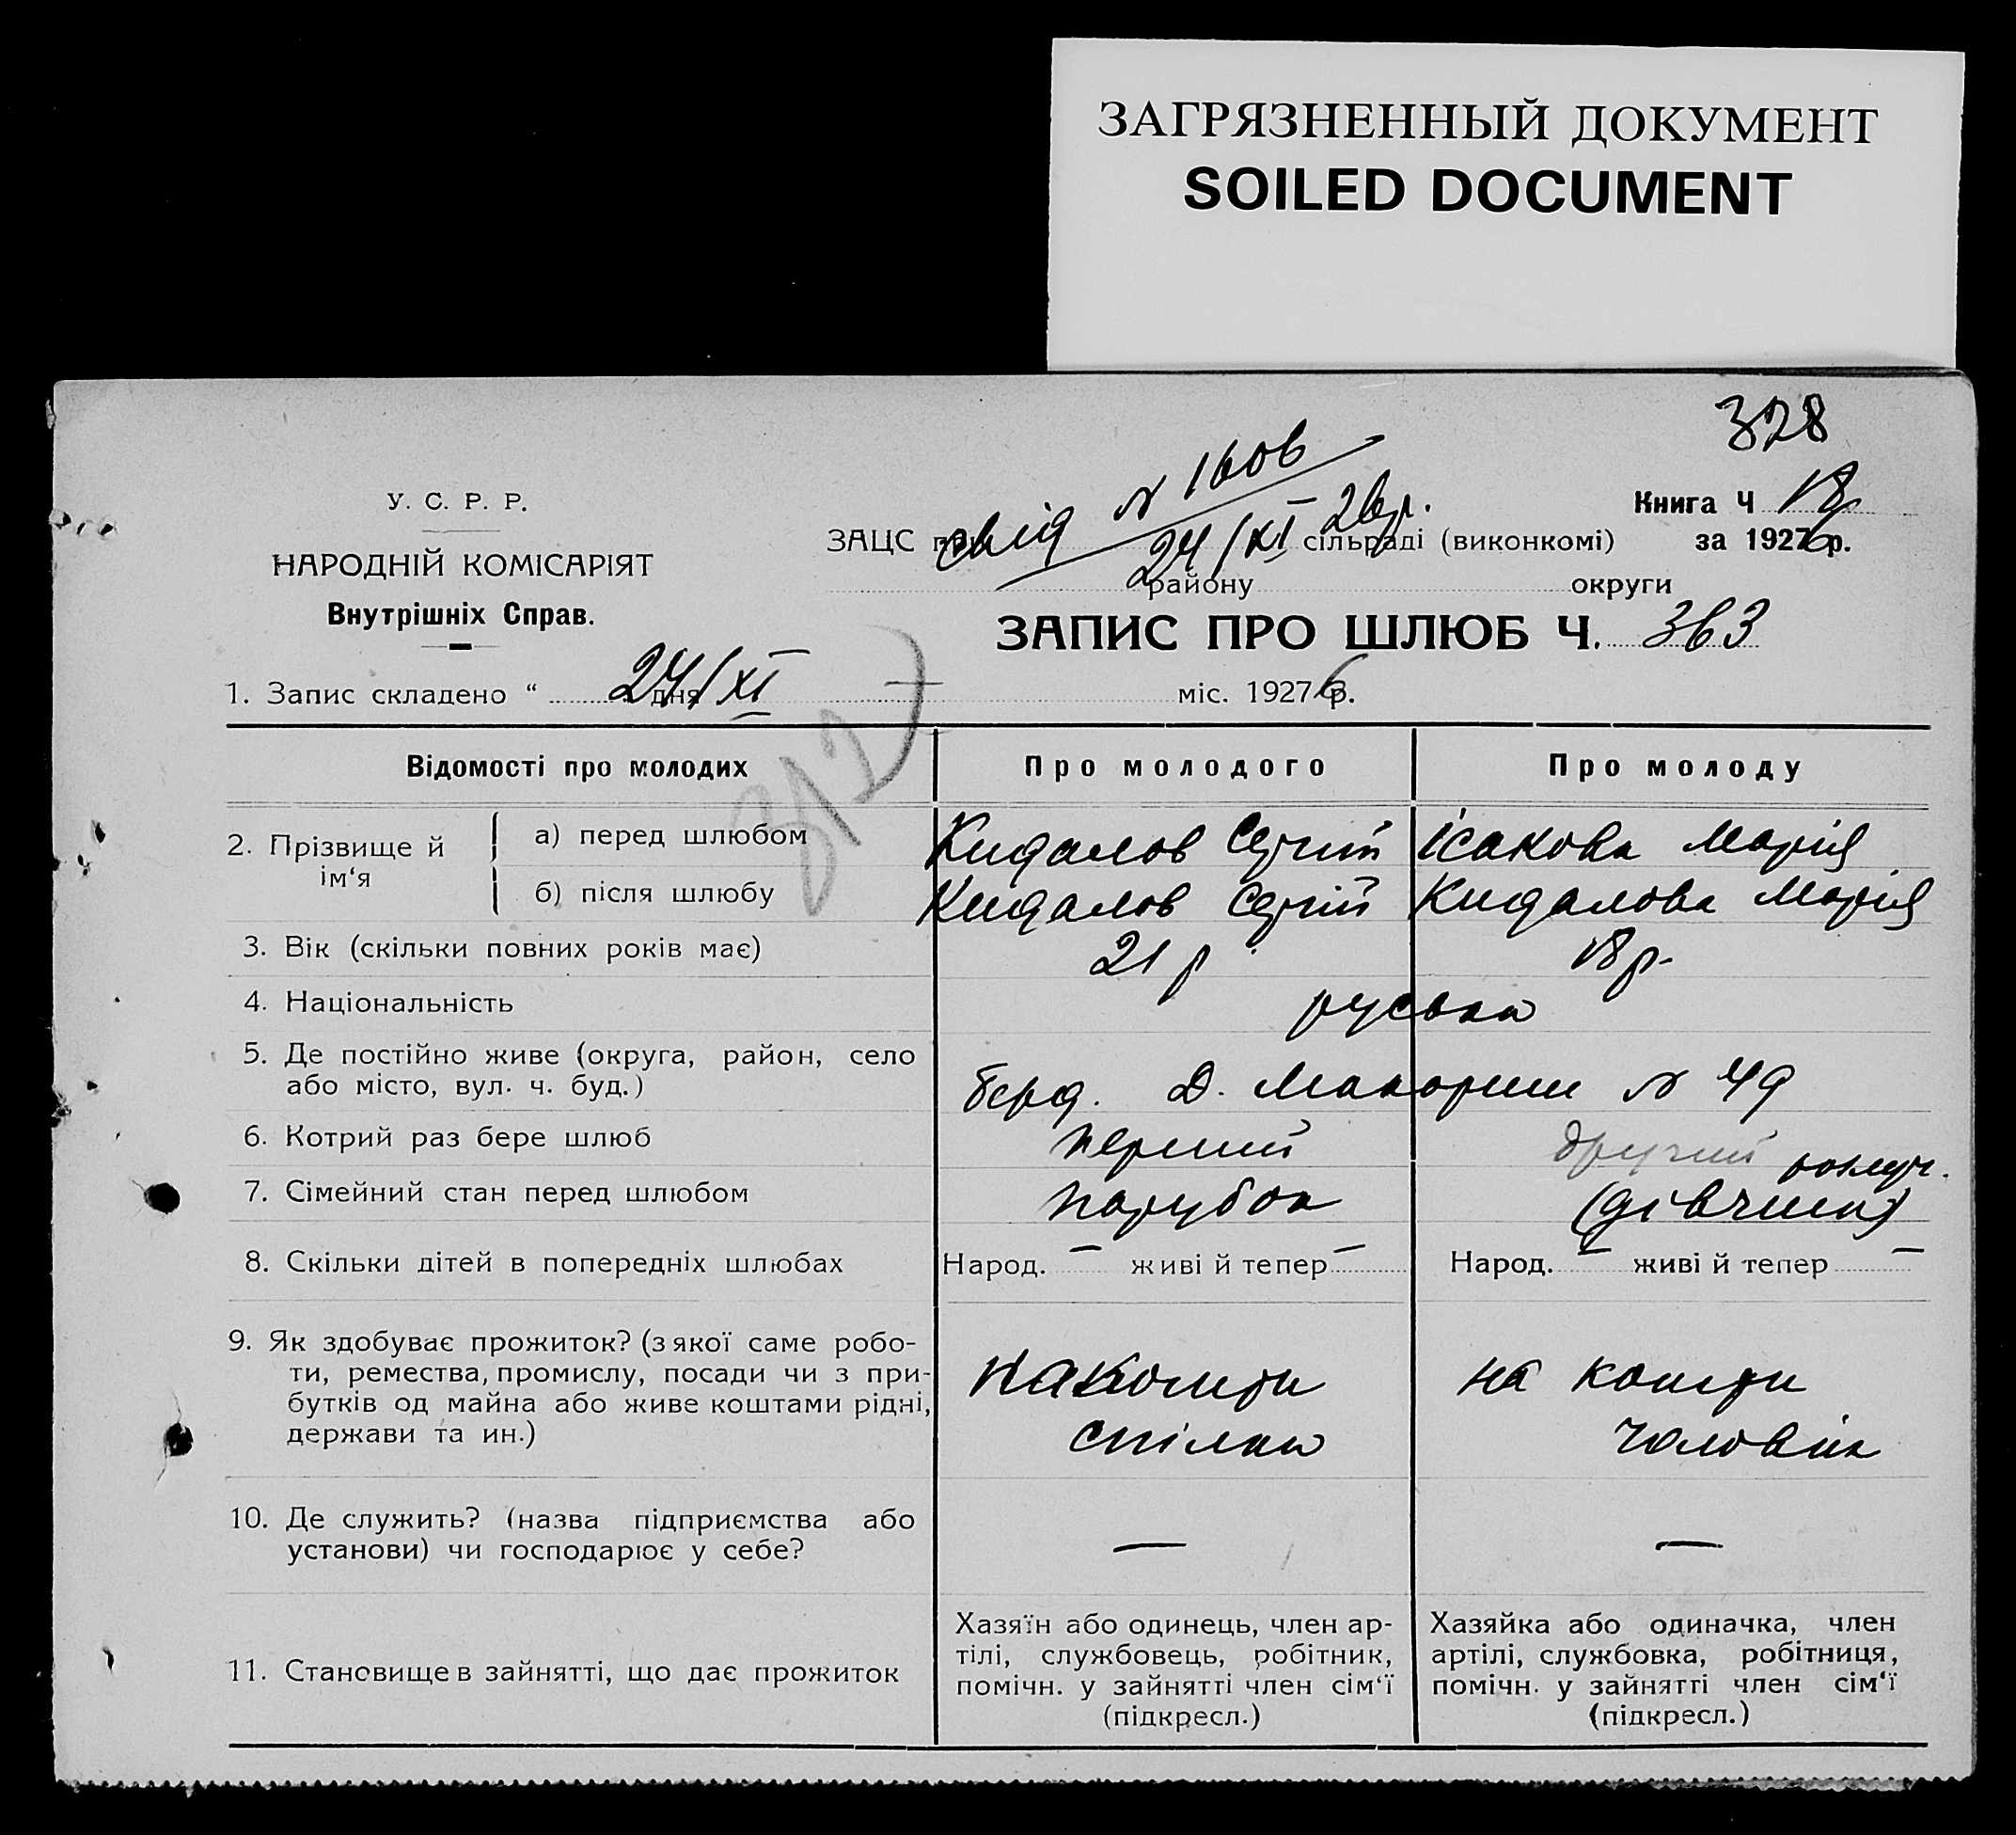 ЗАГРЯЗНЕННЫЙ ДОКУМЕНТ
SOILED DOCUMENT
328
У. С. Р. Р.
НАРОДНІЙ КОМІСАРІЯТ
Внутрішніх Справ.
свід N 1606
24/XI 26р.
Книга Ч 18
ЗАЦС при сільраді (виконкомі) за 1926 р.
району округи
ЗАПИС ПРО ШЛЮБ Ч. 363
1. Запис складено “ 24/XI дня міс. 1927 6 р.
327
Відомості про молодих Про молодого Про молоду
2. Прізвище й ім‘я
а) перед шлюбом Кидалов Сергій Ісакова Марія
б) після шлюбу Кидалов Сергій Кидалова Марія
3. Вік (скільки повних років має) 21 р 18 р.
4. Національність руська
5. Де постійно живе (округа, район, село
або місто, вул. ч. буд.) Берд. Д. Макорти N 49
6. Котрий раз бере шлюб перший другий
розлуч.
7. Сімейний стан перед шлюбом парубок (дівчина)
8. Скільки дітей в попередніх шлюбах Народ. — живі й тепер — Народ. — живі й тепер —
9. Як здобуває прожиток? (з якої саме робо-
ти, ремества, промислу, посади чи з при-
бутків од майна або живе коштами рідні,
держави та ин.)
на кошти
спілки
на кошти
чоловіка
10. Де служить? (назва підприємства або
установи) чи господарює у себе? — —
11. Становище в зайнятті, що дає прожиток
Хазяїн або одинець, член ар-
тілі, службовець, робітник,
помічн. у зайнятті член сім‘ї
(підкресл.)
Хазяйка або одиначка, член
артілі, службовка, робітниця,
помічн. у зайнятті член сім‘ї
(підкресл.)